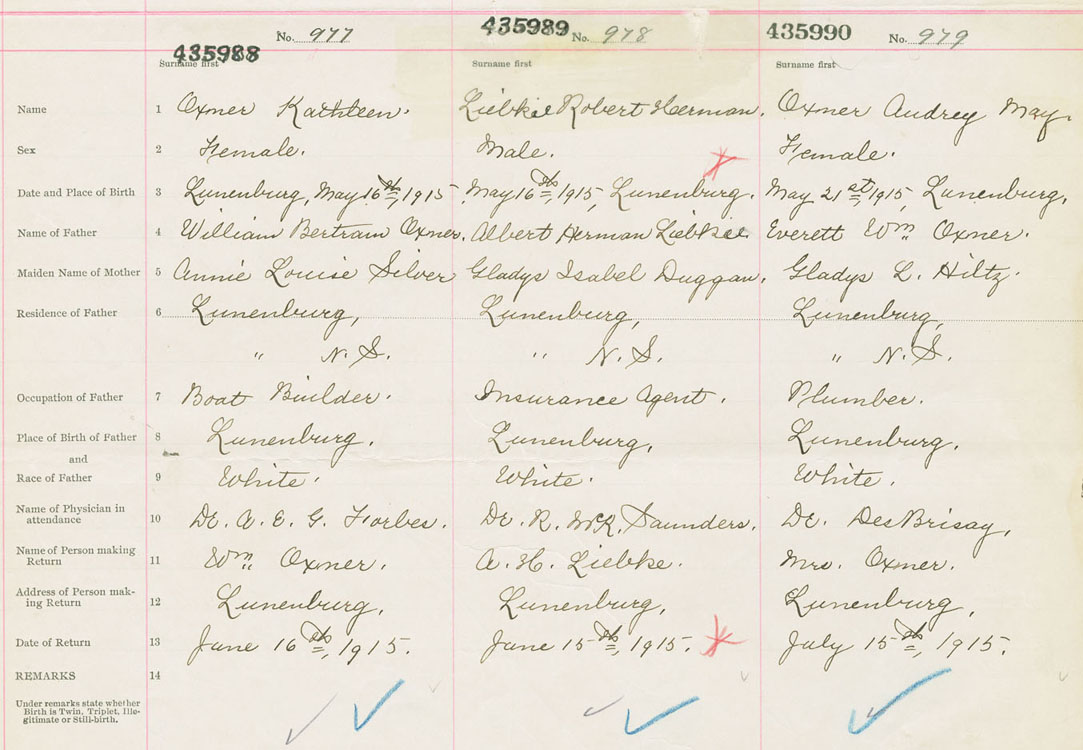 435988 No. 977 435989 No. 978 435990 No. 979
Surname first Surname first Surname first
Name 1 Oxner Kathleen. Liebkie Robert Herman. Oxner Audrey May.
Sex 2 Female. Male. Female.
Date and Place of Birth 3 Lunenburg, May 16th, 1915 May 16th, 1915, Lunenburg. May 21st, 1915, Lunenburg.
Name of Father 4 William Bertram Oxner. Albert Herman Liebkie Everett Wm Oxner.
Maiden Name of Mother 5 Annie Louise Silver Gladys Isabel Duggan. Gladys L. Hiltz.
Residence of Father 6 Lunenburg, Lunenburg, Lunenburg,
" N. S. " N. S. " N. S.
Occupation of Father 7 Boat Builder. Insurance Agent. Plumber.
Place of Birth of Father 8 Lunenburg. Lunenburg, Lunenburg.
and
Race of Father 9 White. White. White.
Name of Physician in
attendance 10 Dr. A. E. G. Forbes. Dr. R. McK. Saunders. Dr. DesBrisay,
Name of Person making
Return 11 Wm Oxner. A. H. Liebke. Mrs. Oxner.
Address of Person mak-
ing Return 12 Lunenburg, Lunenburg, Lunenburg,
Date of Return 13 June 16th, 1915. June 15th, 1915. July 15th, 1915.
REMARKS 14
Under remarks state whether
Birth is Twin, Triplet, Ille-
gitimate or Still-birth.